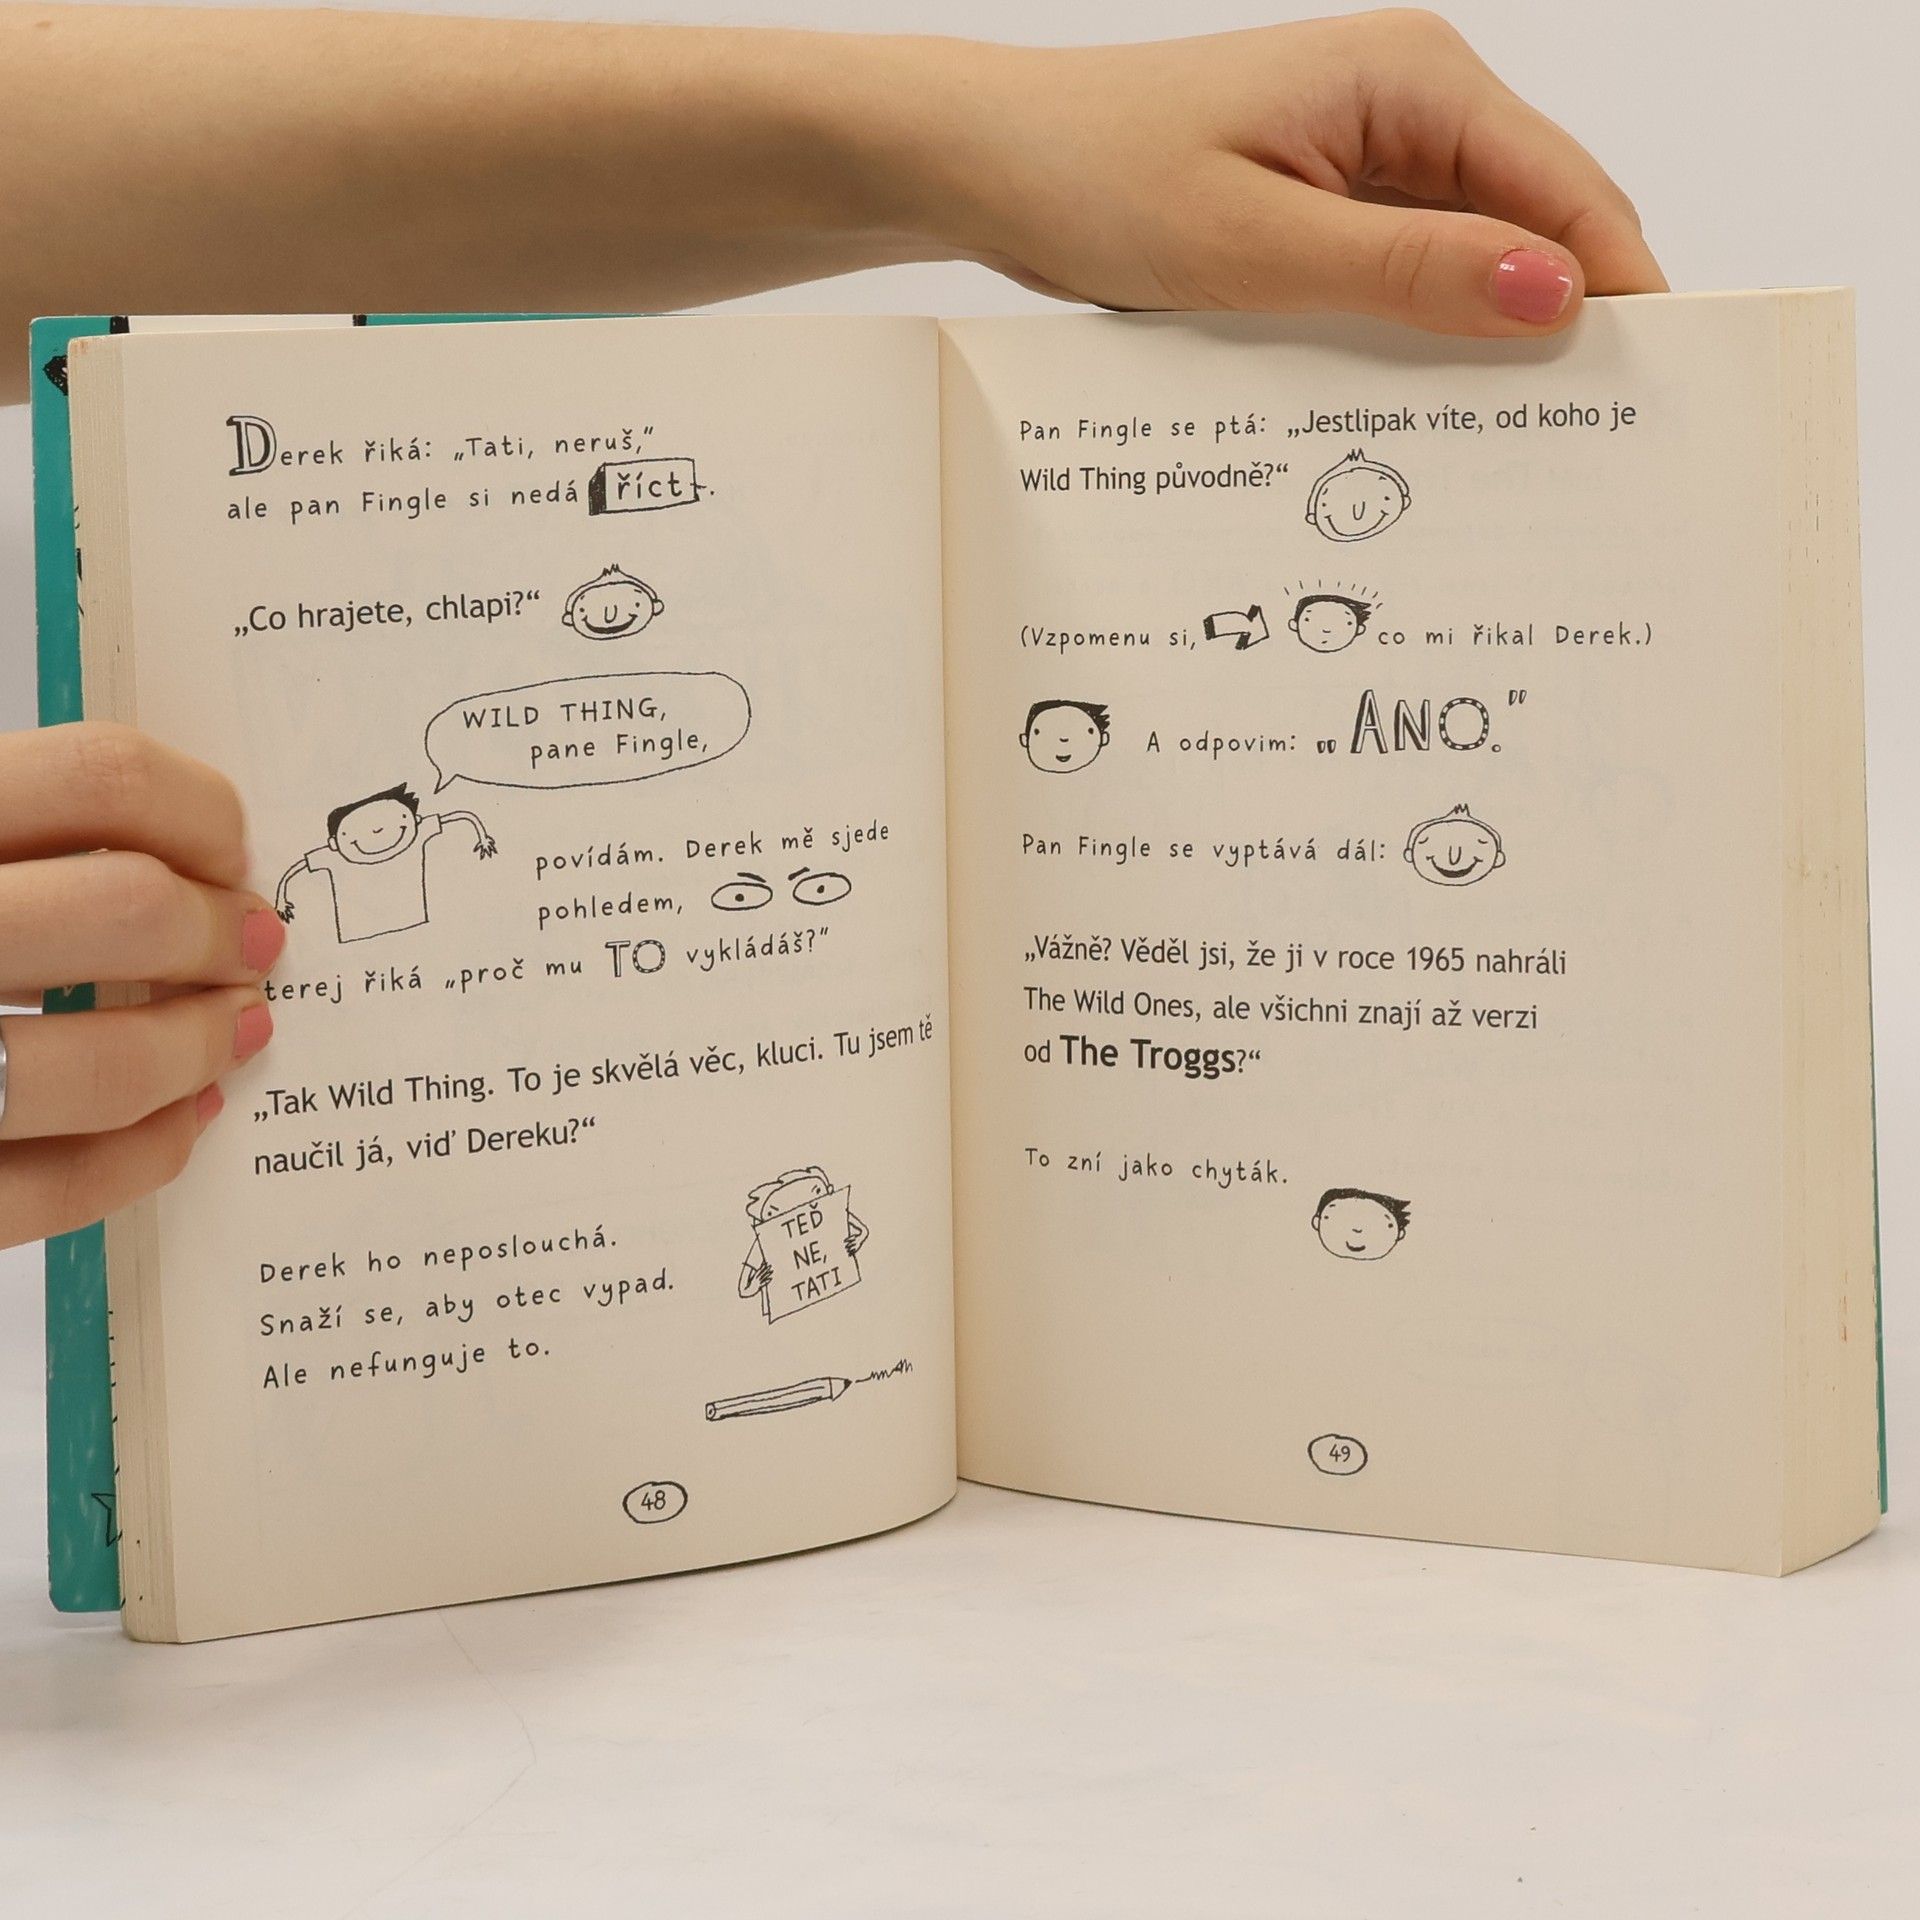 Derek řiká: „Tati, neruš,"
ale pan Fingle si nedá říct.
„Co hrajete, chlapi?“
WILD THING,
pane Fingle,
povídám. Derek mě sjede
pohledem,
terej řiká „proč mu TO vykládáš?"
„Tak Wild Thing. To je skvělá věc, kluci. Tu jsem tě
naučil já, viď Dereku?“
Derek ho neposlouchá.
Snaží se, aby otec vypad.
Ale nefunguje to.
TEĎ
NE,
TATI
48
Pan Fingle se ptá: „Jestlipak víte, od koho je
Wild Thing původně?“
(Vzpomenu si, co mi řikal Derek.)
A odpovim: „ANO."
Pan Fingle se vyptává dál:
„Vážně? Věděl jsi, že ji v roce 1965 nahráli
The Wild Ones, ale všichni znají až verzi
od The Troggs?“
To zní jako chyták.
49